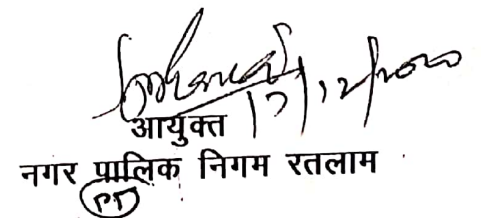 17/12/2020
आयुक्त
नगर पालिक निगम रतलाम
PD